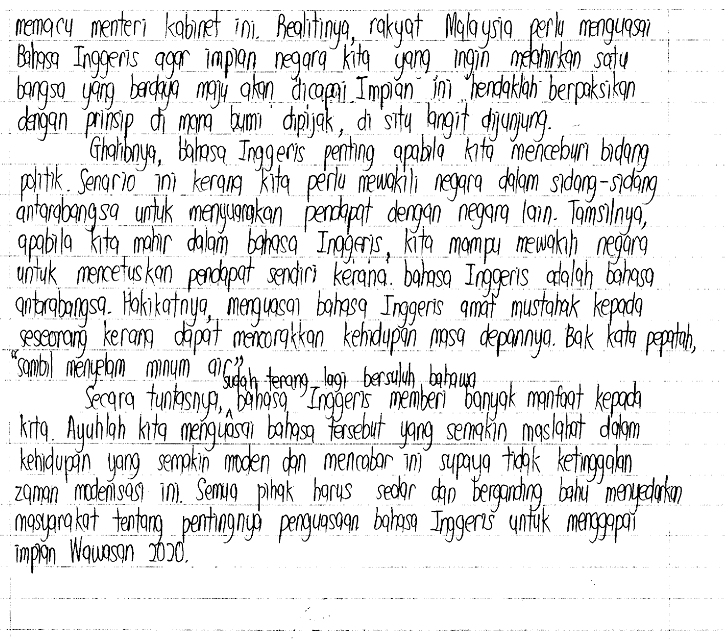 memacu menteri kabinet ini. Realitinya, rakyat Malaysia perlu menguasai
Bahasa Inggeris agar impian negara kita yang ingin melahirkan satu
bangsa yang berdaya maju akan dicapai. Impian ini hendaklah berpaksikan
dengan prinsip di mana bumi dipijak, di situ langit dijunjung.
Ghalibnya, bahasa Inggeris penting apabila kita menceburi bidang
politik. Senario ini kerana kita perlu mewakili negara dalam sidang-sidang
antarabangsa untuk menyuarakan pendapat dengan negara lain. Tamsilnya,
apabila kita mahir dalam bahasa Inggeris, kita mampu mewakili negara
untuk mencetuskan pendapat sendiri kerana. bahasa Inggeris adalah bahasa
antarabangsa. Hakikatnya, menguasai bahasa Inggeris amat mustahak kepada
seseorang kerana dapat mencorakkan kehidupan masa depannya. Bak kata pepatah,
"sambil menyelam minum air"
sudah terang lagi bersuluh bahawa
Secara tuntasnya, bahasa Inggeris memberi banyak manfaat kepada
kita. Ayuhlah kita menguasai bahasa tersebut yang semakin maslahat dalam
kehidupan yang semakin moden dan mencabar ini supaya tidak ketinggalan
zaman modenisasi ini. Semua pihak harus sedar dan berganding bahu menyedarkan
masyarakat tentang pentingnya penguasaan bahasa Inggeris untuk menggapai
impian Wawasan 2020.